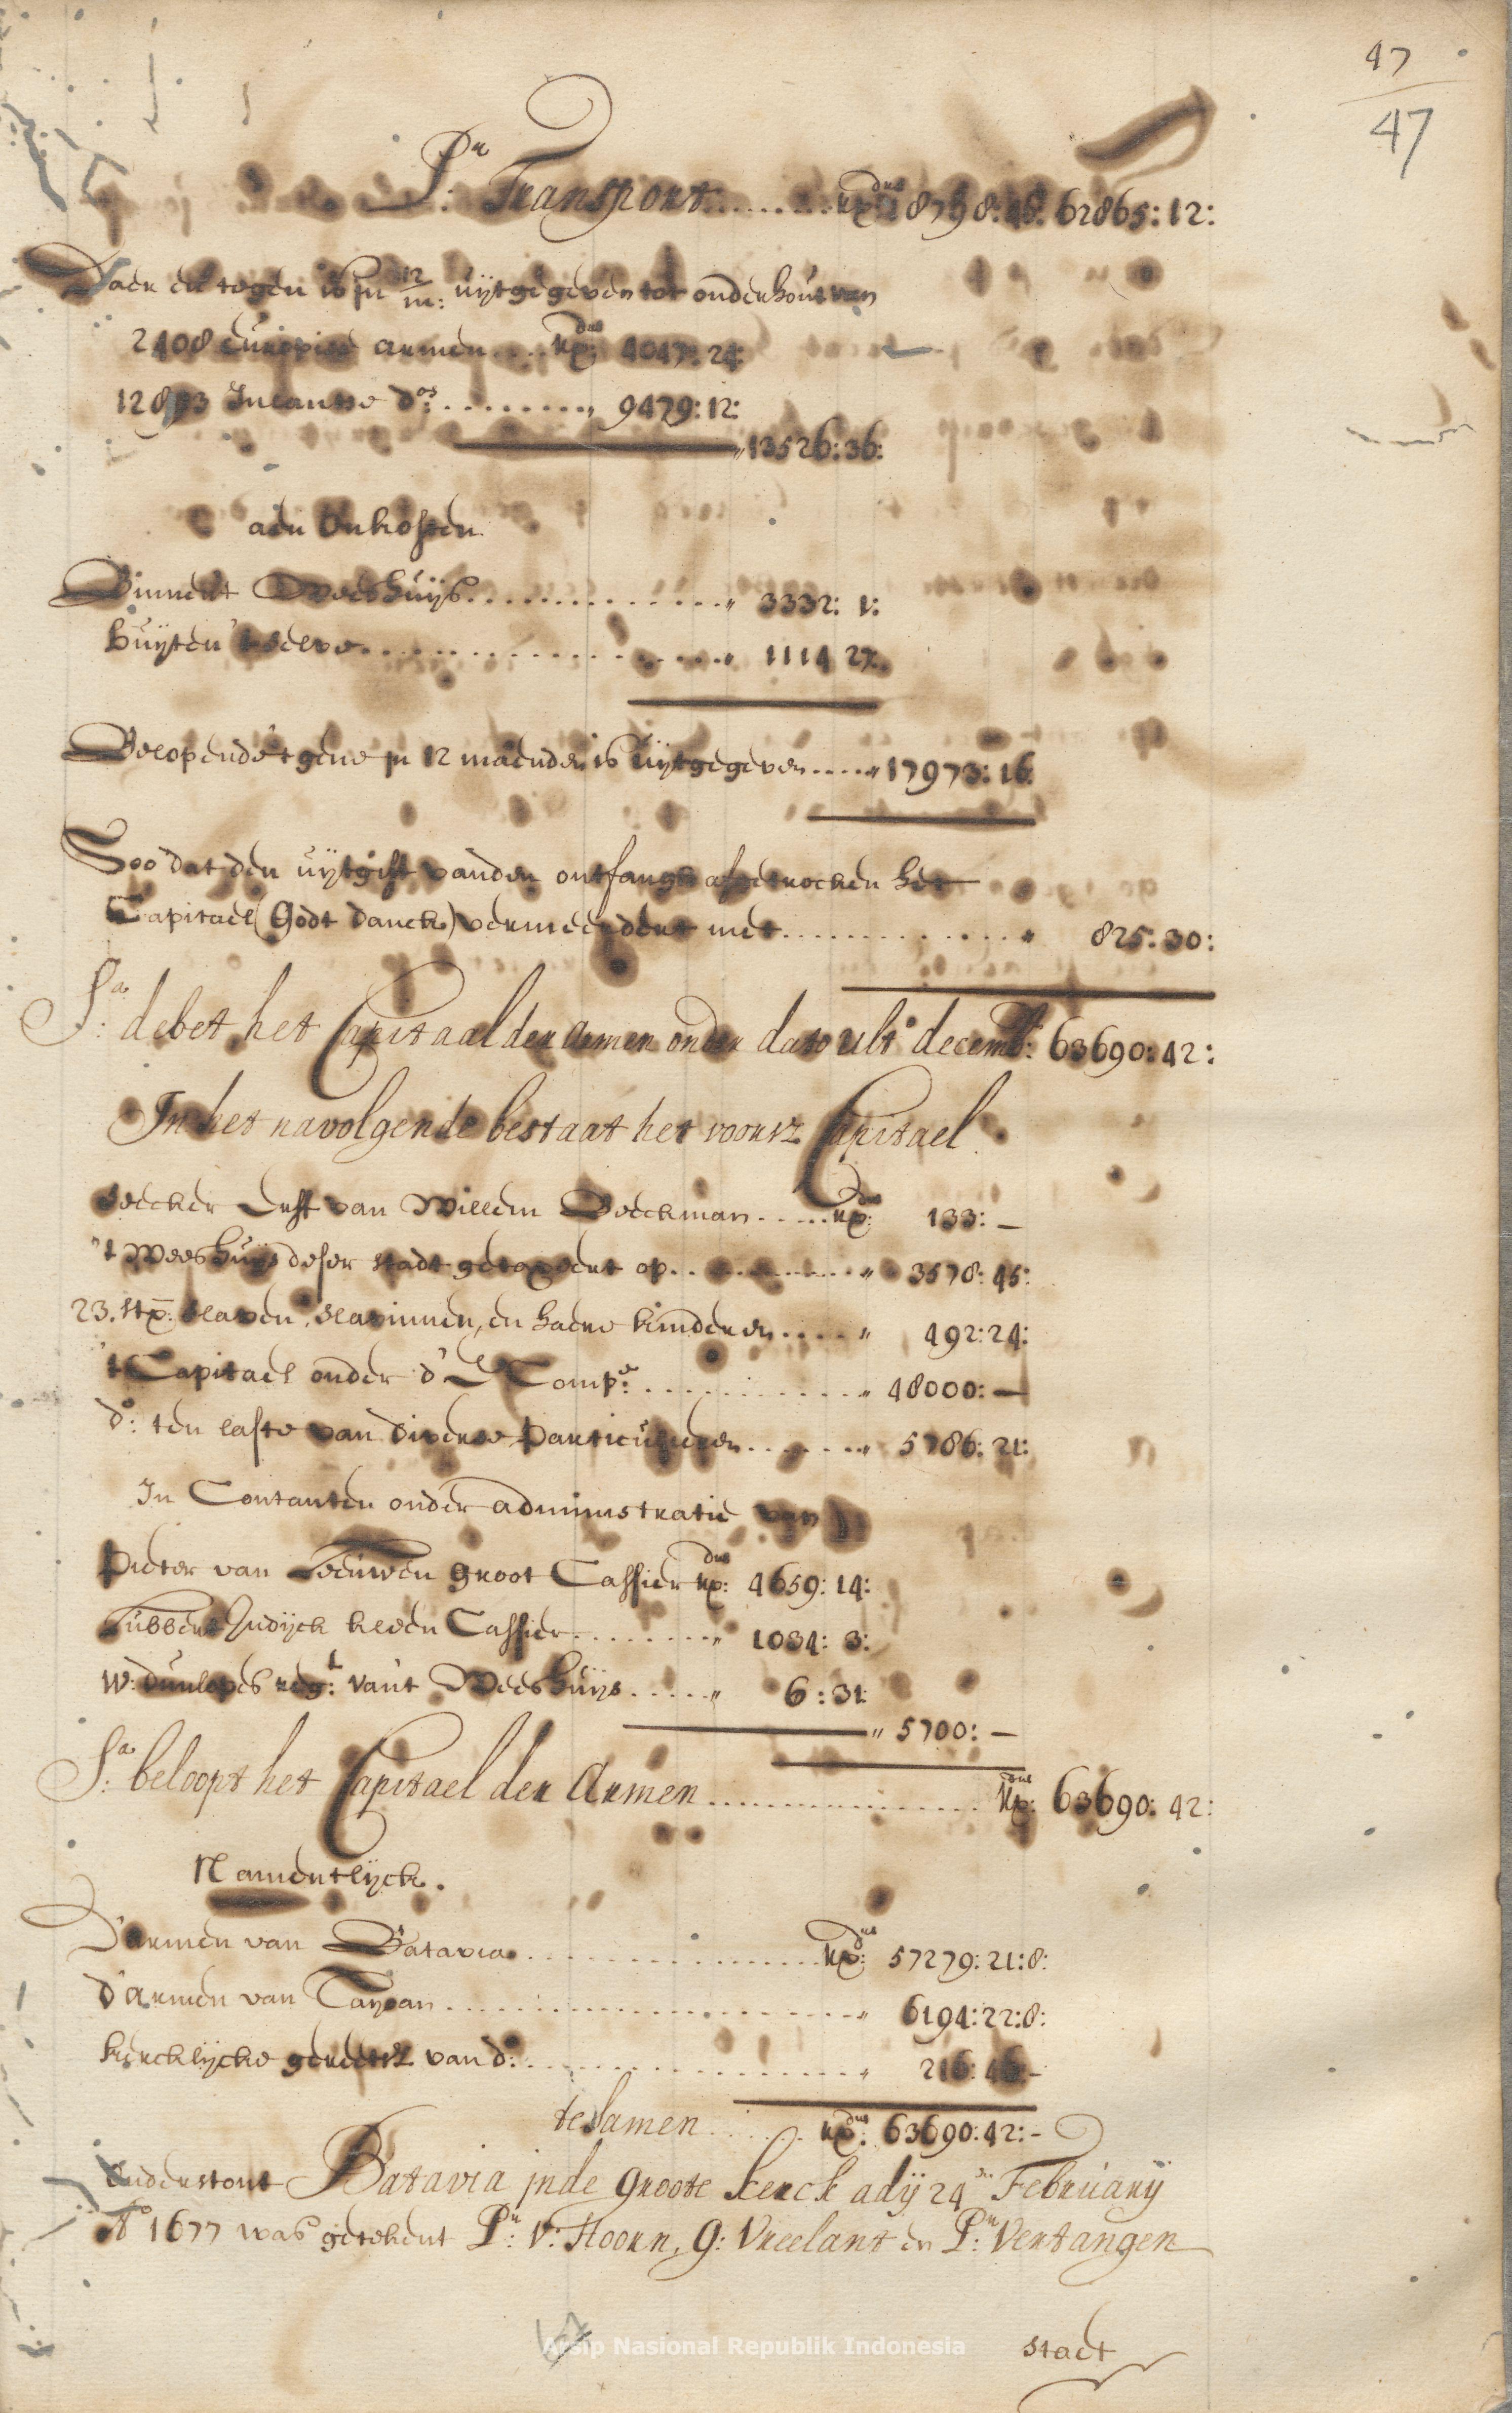 47
47
Pr: Transport......... Rxds 18798:46: 62865:12:
Daer en tegen is in 12/m: uijtgegeven tot onderhout van
2408 Europise armen.... Rxds: 4047:24:
12893 Inlantse dos:........." 9479:12:
"13526:36:
aen Onkosten
Binnen't Weeshuijs..............." 3332: 1:
buijten 't selve...................." 1114 27:
Belopende 't gene in 12 maenden is uijtgegeven....." 17973:16:
Soo dat den uijtgift van den ontfangh afgetrocken het
Capitael (Godt danck) vermeerdert met..............." 825:30:
Sa: debet het Capitaal der Armen onder dato ulto decemb: 63690:42:
In het navolgende bestaat het voorsz Capitael.
seecker Erff van Willem Beeckman..... Rxds: 133:—
't Weeshuijs deser stadt getaxeert op............" 3578:45:
23. stx: slaven, slavinnen, en haere kinderen....." 492:24:
't Capitael onder d' E Compe:............." 48000:—
do: ten laste van diverse Particulieren........" 5786:21:
In Contanten onder administratie van
Pieter van Leeuwen groot Cassier Rxds: 4659:14:
Lubbert Indijck kleen Cassier........." 1034: 3:
W: Dunlopes regt: van't Weeshuijs....." 6:31:
" 5700:—
Sa: beloopt het Capitael der Armen.................. Rxds: 63690:42:
Namentlijck.
D'armen van Batavia................... Rxds: 57279:21:8:
d'armen van Tayoan........................" 6194:22:8:
kercklijcke gereetsz van do:...................." 216:46:-
te samen....... Rxds: 63690:42:-
Onderstont Batavia in de groote kerck adij 24en Februarij
Ao 1677 was geteekent Pr: V: Hoorn, G: Vreelant en Pr: Vertangen
Arsip Nasional Republik Indonesia
stact